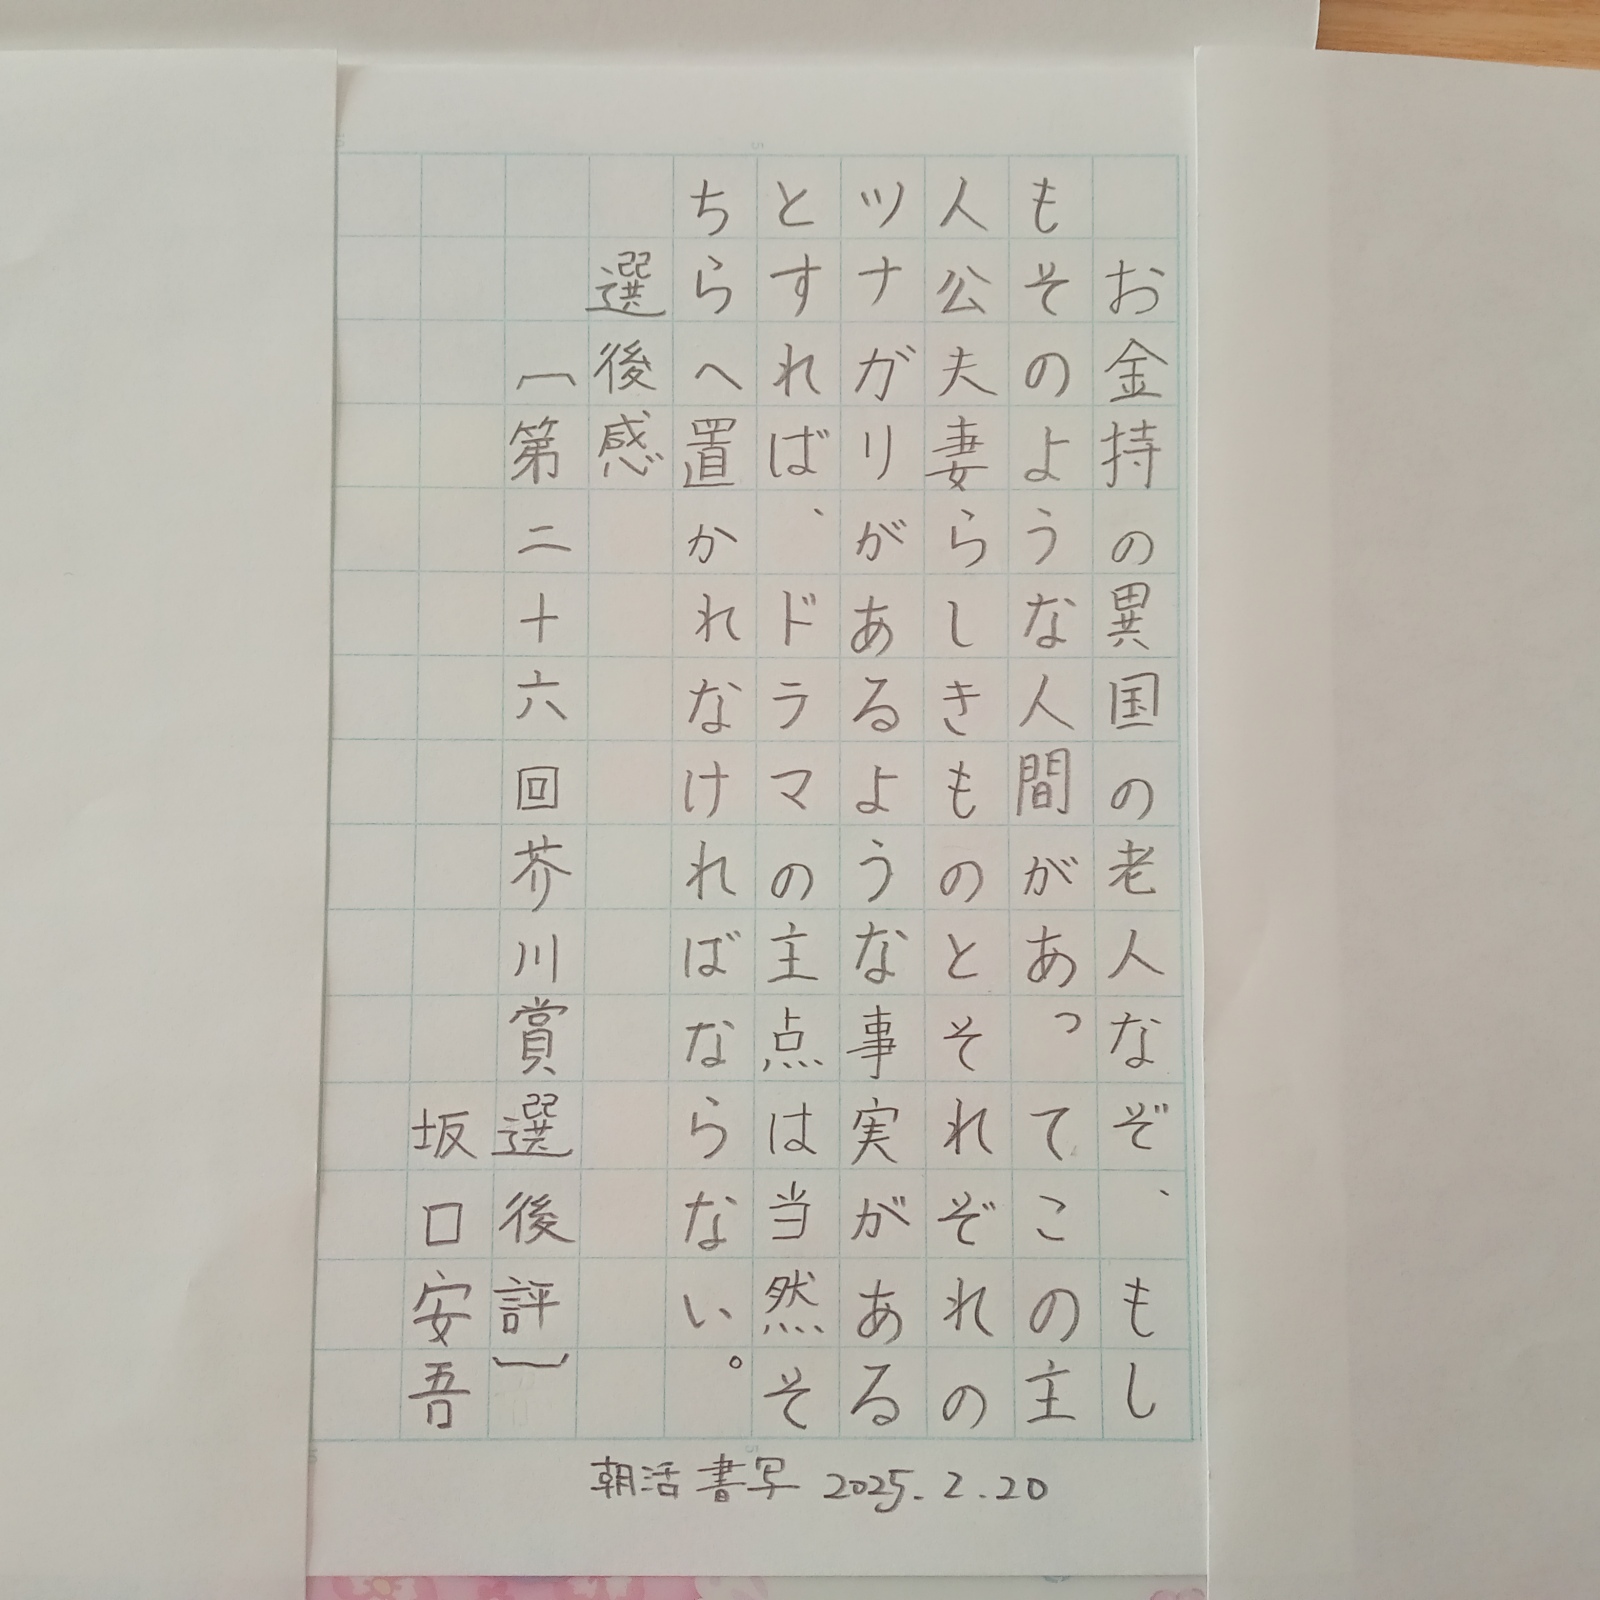 お金持の異国の老人なぞ、もし
もそのような人間があってこの主
人公夫妻らしきものとそれぞれの
ツナガリがあるような事実がある
とすれば、ドラマの主点は当然そ
ちらへ置かれなければならない。
選後感
(第二十六回芥川賞選後評)
坂口安吾
朝活書写 2025.2.20